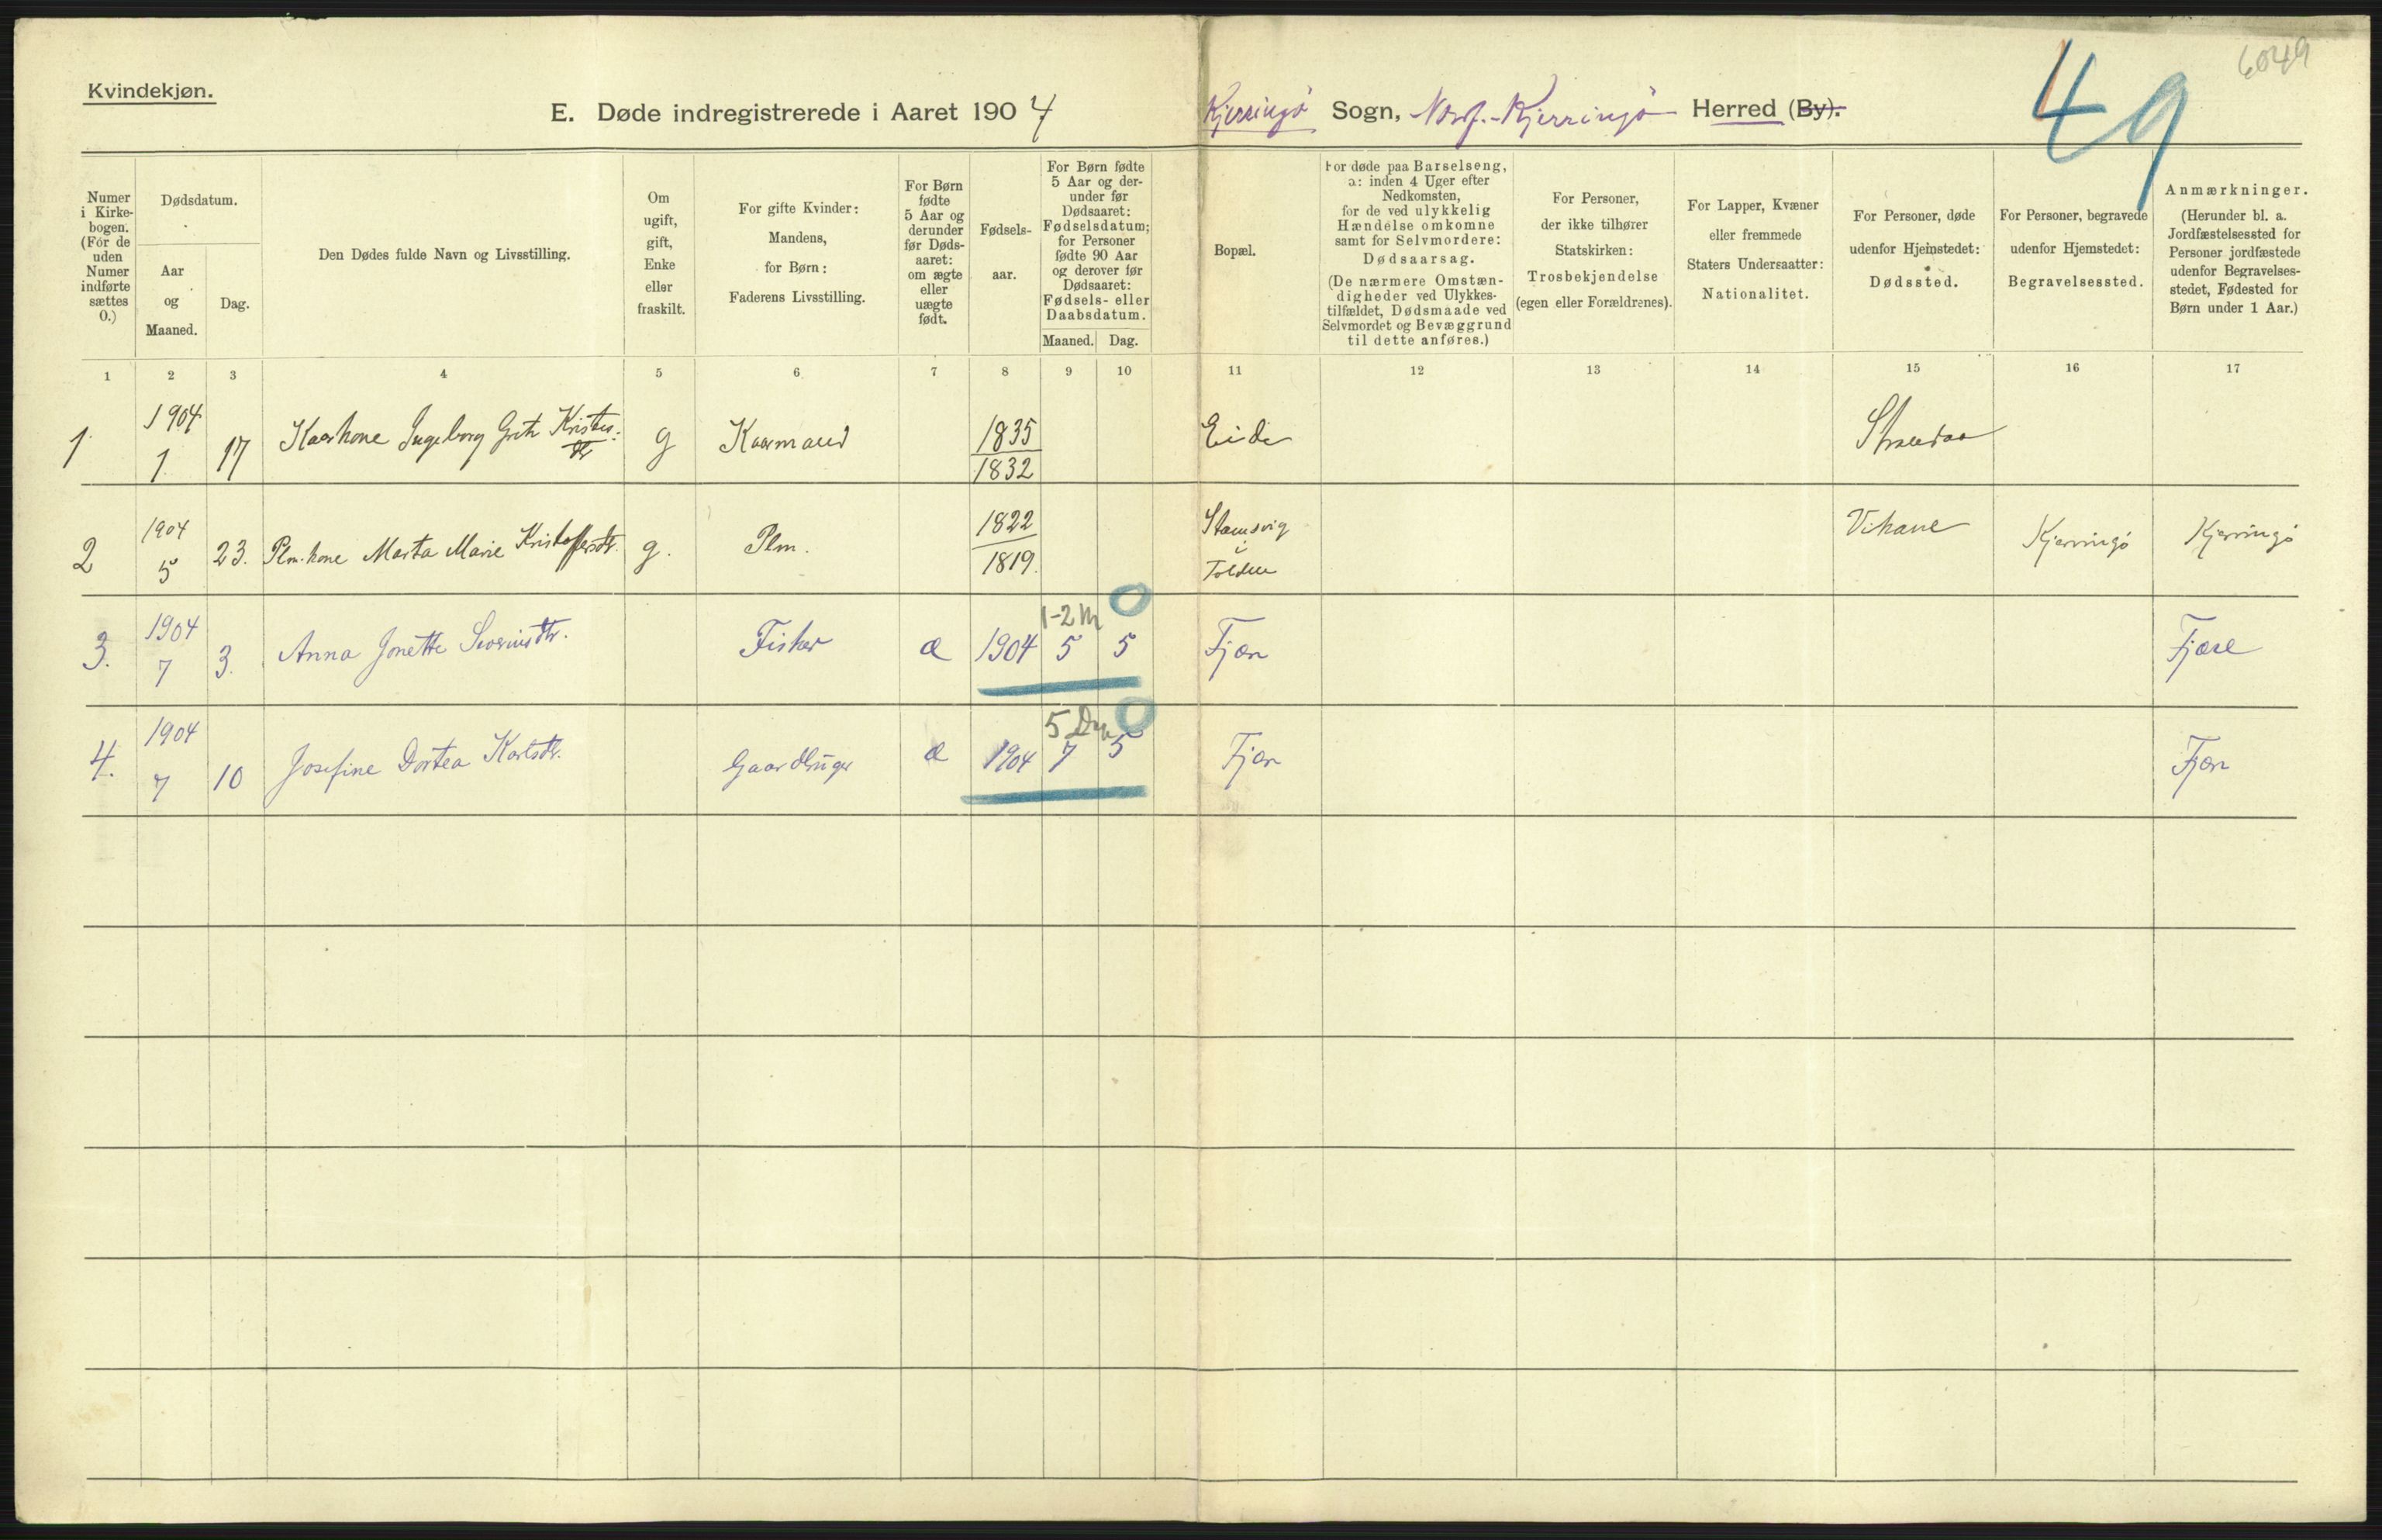 6049
49
Kvindekjøn.
E. Døde indregistrerede i Aaret 1904. Kjerringø Sogn, Nordf.-Kjerringø Herred (By).
Numer i Kirke-bogen. (For de uden Numer indførte sættes 0.)
Dødsdatum.
Aar og Maaned.
Dag.
Den Dødes fulde Navn og Livsstilling.
Om ugift, gift, Enke eller fraskilt.
For gifte Kvinder: Mandens, for Børn: Faderens Livsstilling.
For Børn fødte 5 Aar og derunder før Døds-aaret: om ægte eller uægte født.
Fødsels-aar.
For Børn fødte 5 Aar og der-under før Dødsaaret: Fødselsdatum; for Personer fødte 90 Aar og derover før Dødsaaret: Fødsels- eller Daabsdatum.
Maaned. Dag.
Bopæl.
For døde paa Barselseng, ɔ: inden 4 Uger efter Nedkomsten, for de ved ulykkelig Hændelse omkomne samt for Selvmordere: Dødsaarsag. (De nærmere Omstæn-digheder ved Ulykkes-tilfældet, Dødsmaade ved Selvmordet og Bevæggrund til dette anføres.)
For Personer, der ikke tilhører Statskirken: Trosbekjendelse (egen eller Forældrenes).
For Lapper, Kvæner eller fremmede Staters Undersaatter: Nationalitet.
For Personer, døde udenfor Hjemstedet: Dødssted.
For Personer, begravede udenfor Hjemstedet: Begravelsessted.
Anmærkninger. (Herunder bl. a. Jordfæstelsessted for Personer jordfæstede udenfor Begravelses-stedet, Fødested for Børn under 1 Aar.)
1 2 3 4 5 6 7 8 9 10 11 12 13 14 15 16 17
1 1904 1 17 Kaarkone Ingeborg Greth Kristens. dtr g Kaarmand 1835 1832 Eide Strandaa
2 1904 5 23. Plm.kone Marta Marie Kristoffersdtr. g. Plm. 1822 1819. i Folden Vikane Kjerringø Kjerringø
3. 1904 7 3. Anna Jonette Severinsdtr. Fisker æ 1904 1-2 M 5 0 5 Fjære Fjære
4. 1904 7 10 Josefine Dortea Karlsdtr. Gaardbruger æ 1904 5 7 0 5 Fjære Fjære